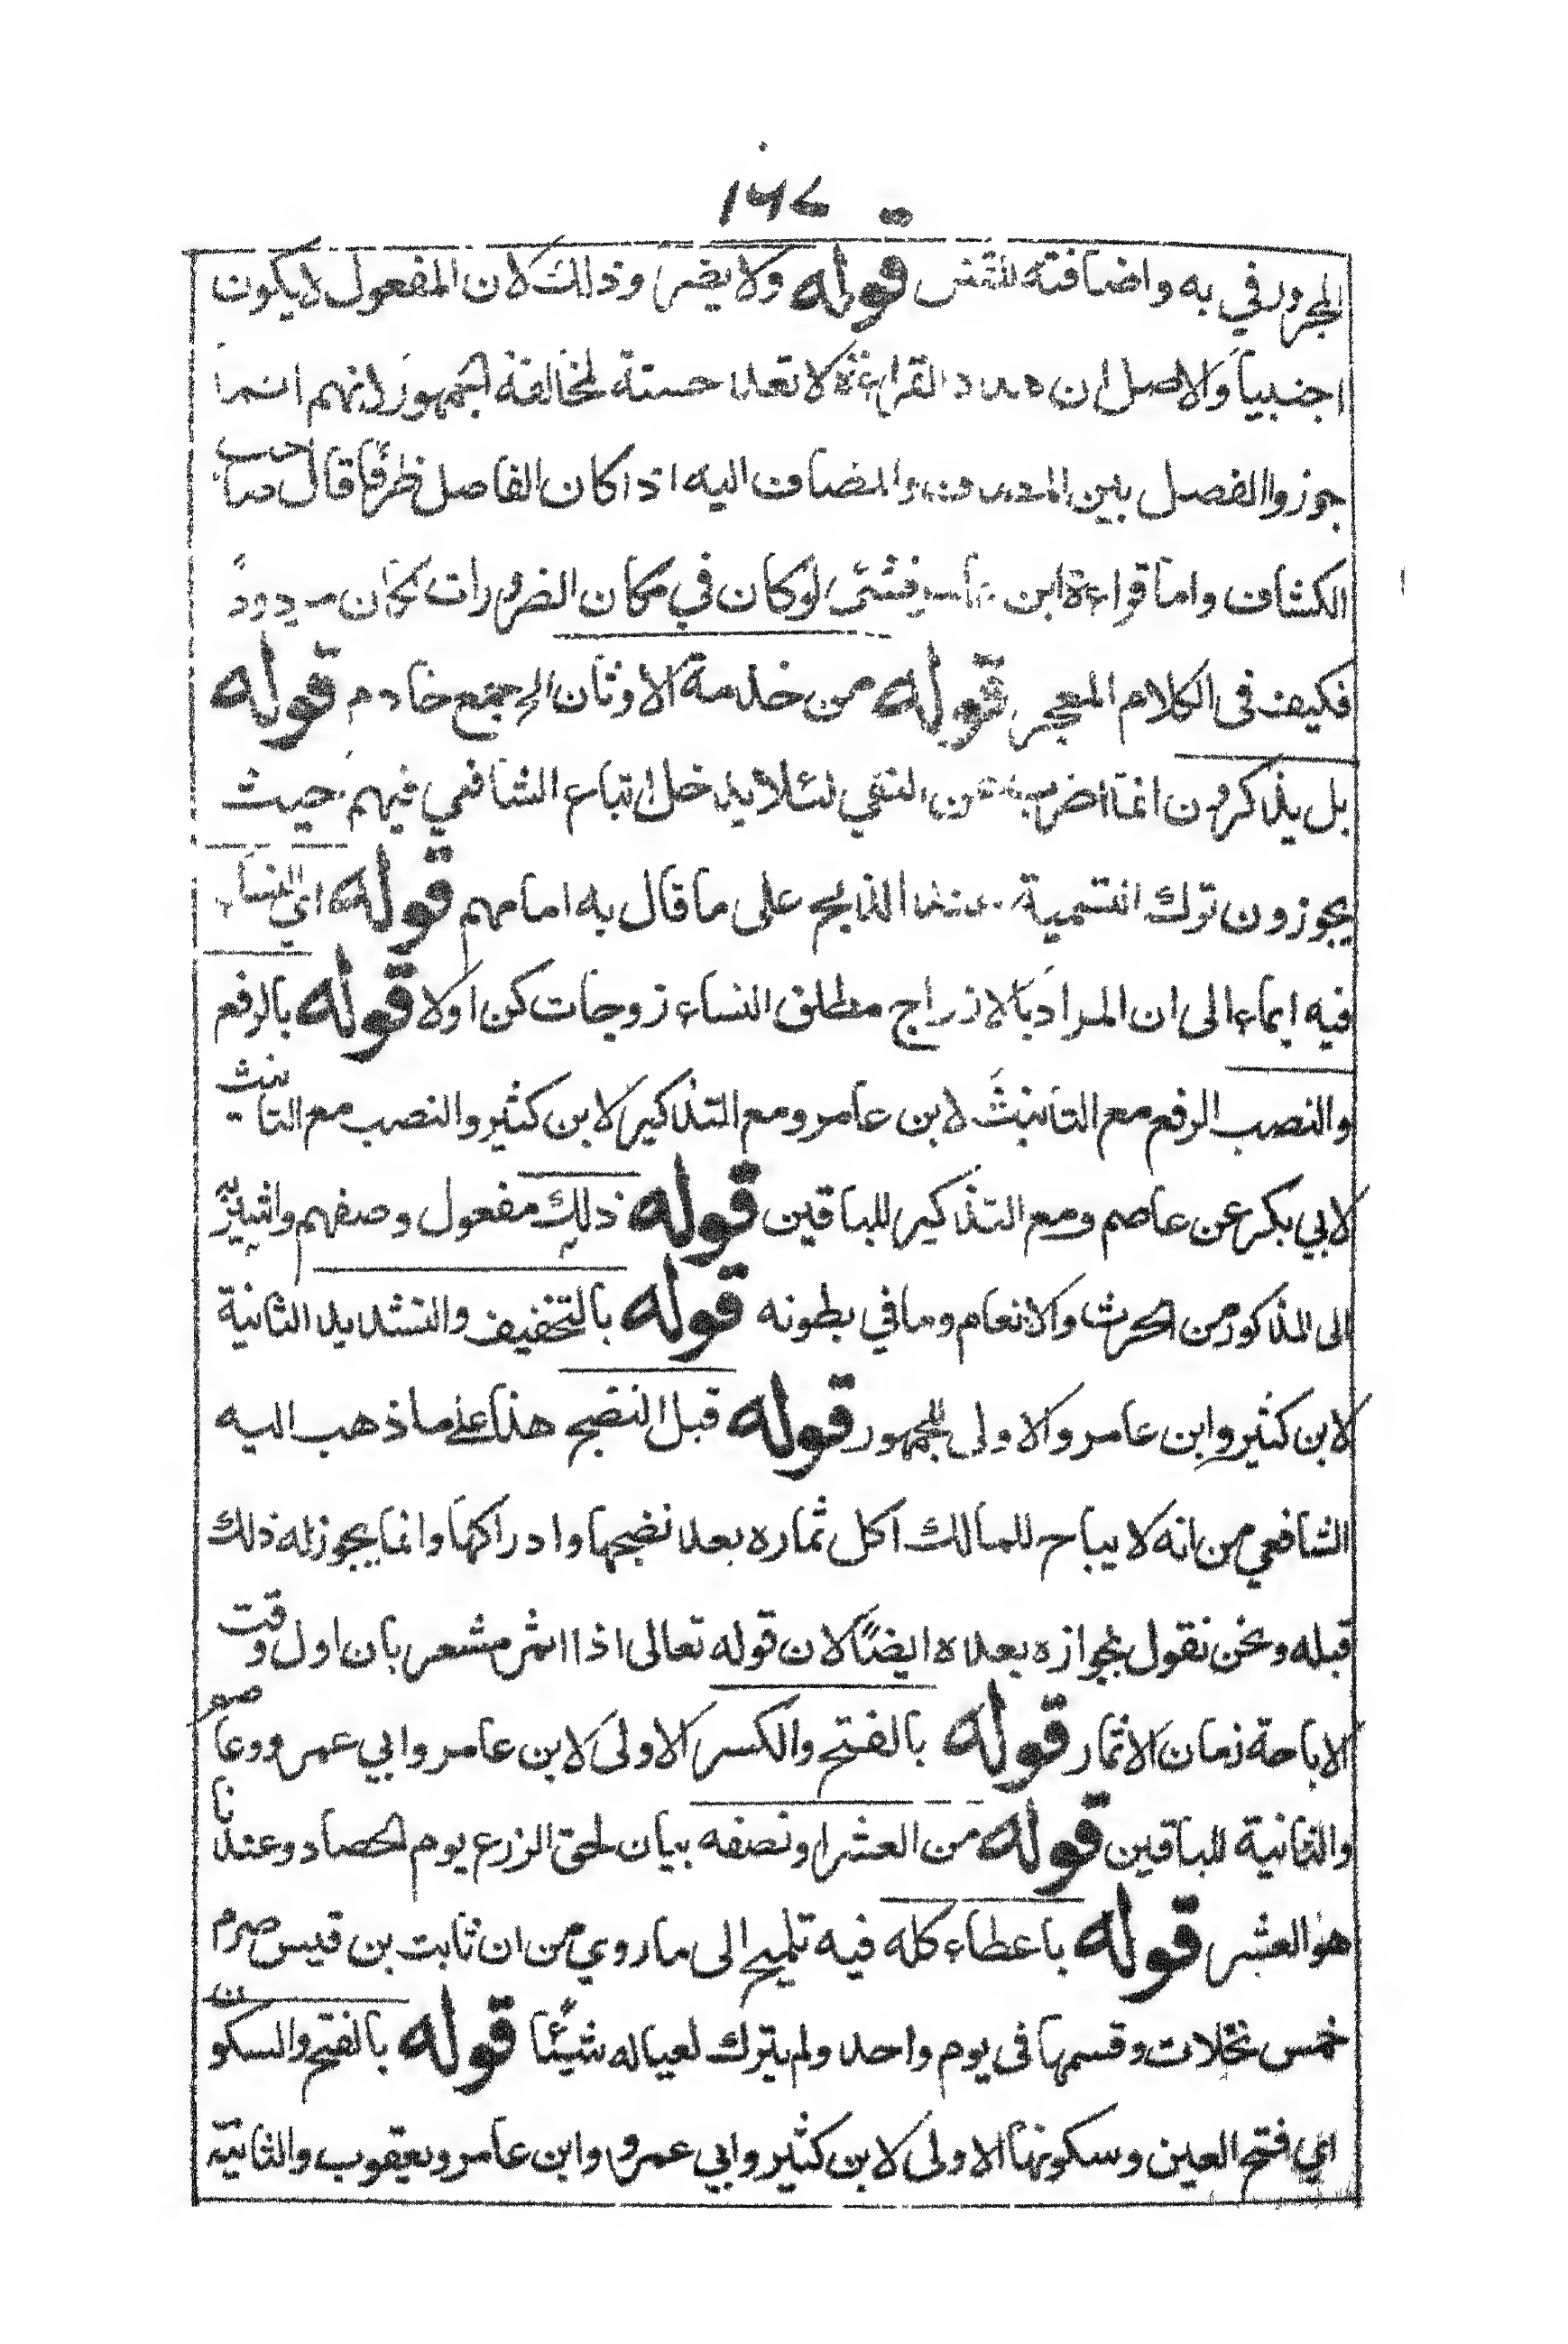 ١٦٧
المجرور في به واضافته للقتل قوله ولا يضر وذلك لان المفعول لا يكون
اجنبياً والاصل ان هذه القراءة لا تعد حسنة لمخالفة الجمهور لانهم انما
جوزوا الفصل بين المضاف والمضاف اليه اذا كان الفاصل ظرفًا قال صاحب
الكشاف واما قراءة ابن عامر فشئ لو كان في مكان الضرورات لكان مردودً
فكيف فى الكلام المعجز قوله من خدمة الاوثان الخ جمع خادم قوله
بل يذكرون انما اضرب عن النفي لئلا يدخل اتباع الشافعي فيهم حيث
يجوزون ترك التسمية عند الذبح على ما قال به امامهم قوله اي النساء
فيه ايماء الى ان المراد بالازواج مطلق النساء زوجات كن اولا قوله بالرفع
والنصب الرفع مع التانيث لابن عامر ومع التذكير لابن كثير والنصب مع التانيث
لابي بكر عن عاصم ومع التذكير للباقين قوله ذلك مفعول وصفهم واشير به
الى المذكور من الحرث والانعام وما في بطونه قوله بالتخفيف والتشديد الثانية
لابن كثير وابن عامر والاولى للجمهور قوله قبل النضج هذا على ما ذهب اليه
الشافعي من انه لا يباح للمالك اكل ثماره بعد نضجها وادراكها وانما يجوز له ذلك
قبله ونحن نقول بجوازه بعده ايضًا لان قوله تعالى اذا اثمر مشعر بان اول وقت
الاباحة زمان الاثمار قوله بالفتح والكسر الاولى لابن عامر وابي عمرو وعاصم
والثانية للباقين قوله من العشر او نصفه بيان لحق الزرع يوم الحصاد وعندنا
هو العشر قوله باعطاء كله فيه تلميح الى ما روي من ان ثابت بن قيس صرم
خمس نخلات وقسمها فى يوم واحد ولم يترك لعياله شيئًا قوله بالفتح والسكون
اي فتح العين وسكونها الاولى لابن كثير وابي عمرو وابن عامر ويعقوب والثانية